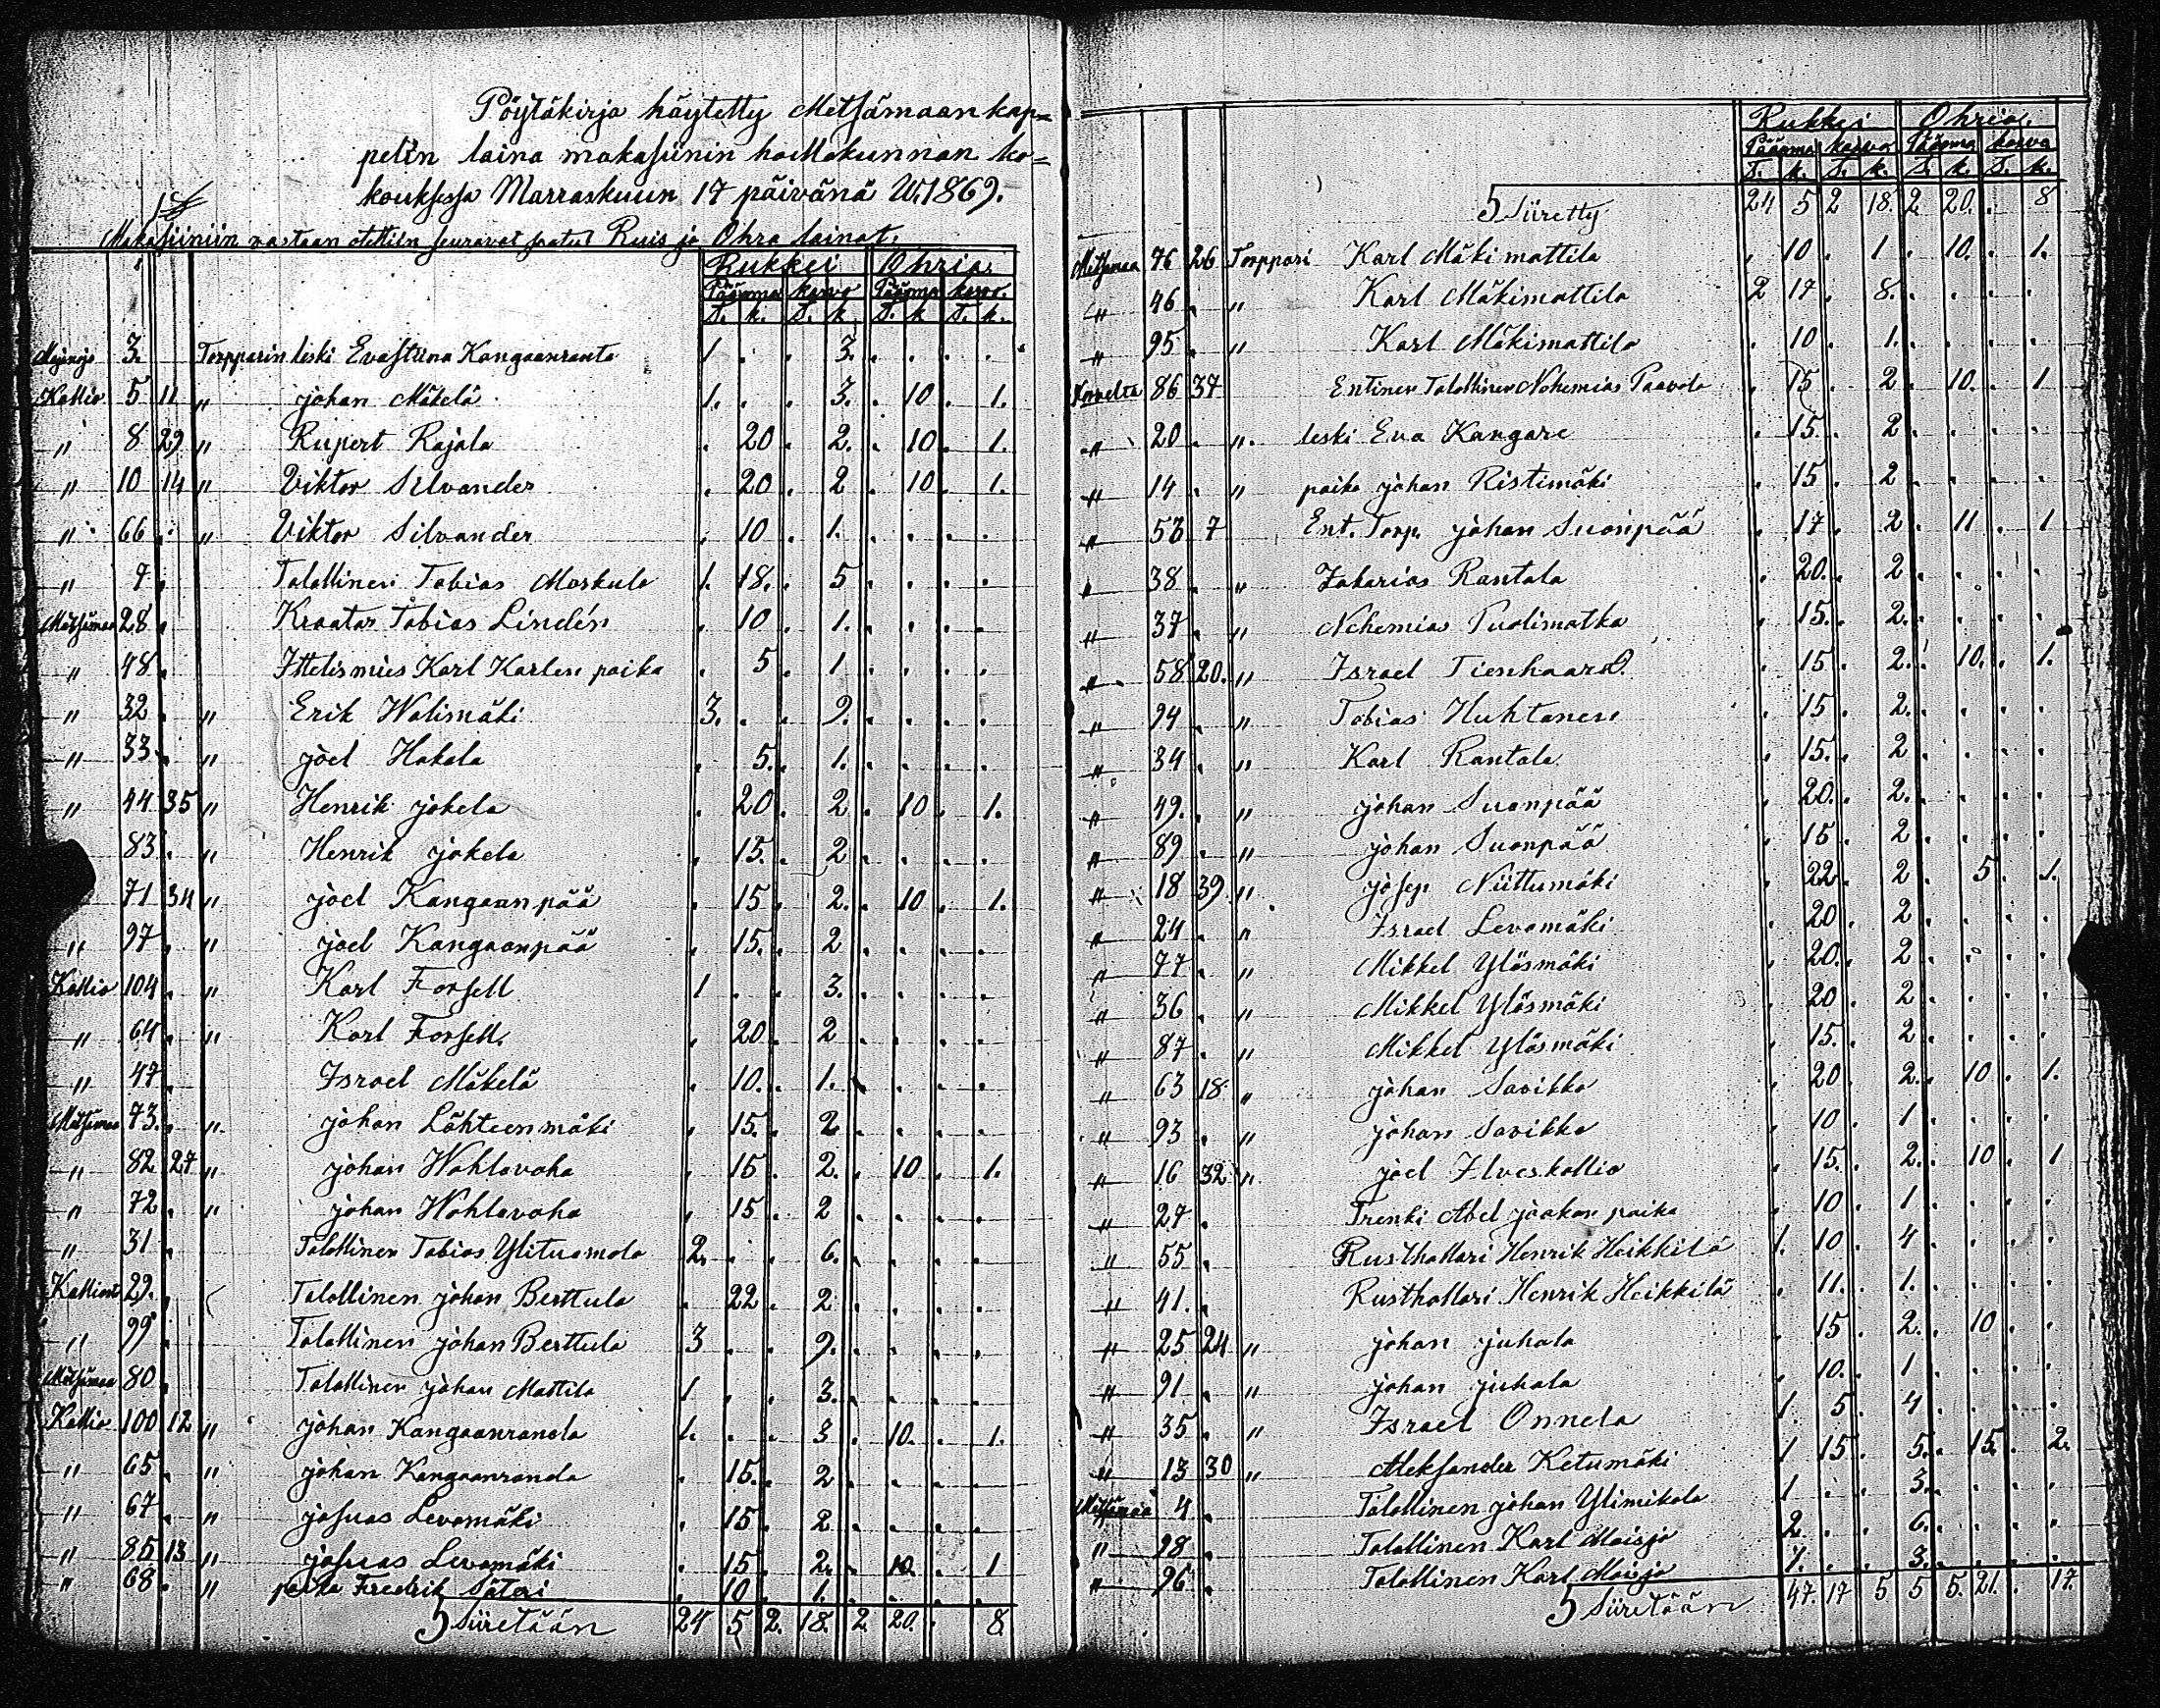 Pöytäkirja häytetty Metsämaan kap=
pelin laina makasiinin haltiakunnan ko=
kouksessa Marraskuun 17 päivänä W. 1869.
1 §
Makasiiniin vastaan otettiin seuravat saatut Ruis ja Ohra lainat.
Rukkei Ohria
Pääoma kasvo Pääoma kasvo.
T. k. T. k. T. k T. k.
3. Torpparin leski Evastiina Kangaanranta 1 . . 3. . . . .
Kallio 5 11 " Johan Mäkelä 1. . . 3. . 10 . 1.
" 8 29 " Rupert Rajala . 20 . 2. . 10 . 1.
" 10 14 " Viktor Silvander . 20 . 2 . 10 . 1.
" 66 . " Viktor Silvander . 10 . 1. . . . .
" 7 . Talollinen Tobias Maskula 1. 18. . 5 . . . .
Metsämaa 28 . Kraatar Tobias Lindén . 10 . 1. . . . .
" 48 . Ittelismies Karl Karlen poika . 5 . 1 . . . .
" 32 . " Erik Walimäki 3. . . 9. . . . .
" 33 . " Joel Hakala . 5. . 1. . . . .
" 44 35 " Henrik Jokela . 20 . 2 . 10 . 1.
83 . " Henrik Jokela . 15. . 2 . . . .
71 34 " Joel Kangaanpää . 15 . 2. . 10 . 1.
" 97 . " Joel Kangaanpää . 15. . 2 . . . .
Kallio 104 . " Karl Forsell 1 . . 3. . . . .
" 64 . " Karl Forsell. . 20 . 2 . . . .
" 47 . Israel Mäkelä . 10. . 1. . . . .
Metsämaa 73. . " Johan Lähteenmäki . 15. . 2. . . . .
" 82 27 " Johan Wahlavaha . 15 . 2. . 10 . 1.
" 72 . " Johan Wahlavaha . 15 . 2 . . . .
" 31 . Talollinen Tobias Ylituomola 2. . . 6. . . . .
29. . Talollinen Johan Berttula . 22 . 2 . . . .
" 99 . Talollinen Johan Berttula 3 . . 9. . . . .
Metsämaa 80 . Talollinen Johan Mattila 1 . . 3. . . . .
Kallio 100 12 " Johan Kangaanranda 1. . . 3 . 10. . 1.
" 65 . " Johan Kangaanranda . 15. . 2 . . . .
" 67 . " Josuas Levomäki . 15 . 2 . . . .
" 85 13 " Josuas Levomäki . 15 . 2. . 10. . 1
" 68 . " poika Fredrik Säteri . 10 . 1. . . . .
Siiretään 24 5 2. 18. 2. 20. . 8.
Rukkei Ohria.
Pääoma kasvo Pääoma kasva
T. k. T. k. T. k. T. k.
Siiretty 24 5 2 18. 2 20. . 8
Metsämaa 76 26 Torppari Karl Mäkimattila . 10 . 1 . 10. . 1.
" 46 . " Karl Mäkimattila 2 17 . 8. . . . .
" 95 . " Karl Mäkimattila . 10 . 1. . . . .
86 37 Entinen Talollinen Nehemias Paavola . 15 . 2 . 10. . 1
" 20 . " leski Eva Kangare . 15. . 2 . . . .
" 14 . " poika Johan Ristimäki . 15 . 2 . . . .
" 53 7 Ent. Torp. Johan Suonpää . 17 . 2 . 11 . 1
" 38 . " Zakarias Rantala . 20. . 2 . . . .
" 37 . " Nehemias Puolimatka . 15. . 2. . . . .
" 58 20. " Israel Tienhaara . 15 . 2. . 10. . 1.
" 94 . " Tobias Huhtanen . 15 . 2. . . . .
" 34 . " Karl Rantala . 15. . 2 . . . .
" 49. . " Johan Suonpää . 20. . 2. . . . .
" 89 . " Johan Suonpää . 15 . 2 . . . .
" 18 39 " Josep Niittumäki . 22 . 2 . 5 . 1.
" 24 . " Israel Levomäki . 20 . 2 . . . .
" 77 . " Mikkel Ylösmäki . 20. . 2 . . . .
" 36 . " Mikkel Ylösmäki . 20 . 2 . . . .
" 87 . " Mikkel Ylösmäki . 15. . 2 . . . .
" 63 18 " Johan Savikko . 20 . 2. . 10 . 1.
" 93 . " Johan Savikko . 10 . 1 . . . .
" 16 32 " Joel Ilveskallio . 15. . 2. . 10 . 1
" 27 . Trenki Abel Jaakon poika . 10 . 1 . . . .
" 55 . Rusthollari Henrik Heikkilä 1. 10 . 4 . . . .
" 41. . Rusthollari Henrik Heikkilä . 11. . 1. . . . .
" 25 24 " Johan Juhala . 15 . 2. . 10 . .
" 91 . " Johan Juhala . 10. . 1 . . . .
" 35 . " Israel Onnela 1. 5 . 4 . . . .
" 13 30 " Aleksander Ketumäki 1 15 . 5. . 15. . 2.
Metsämaa 4 . Talollinen Johan Ylimikola 1 . . 3. . . . .
" 98 . Talollinen Karl Moisjo 2. . . 6. . . . .
" 96 . Talollinen Karl Moisjo 1. . . 3. . . . .
Siiretään 47. 17 5 5 5. 21. . 17.